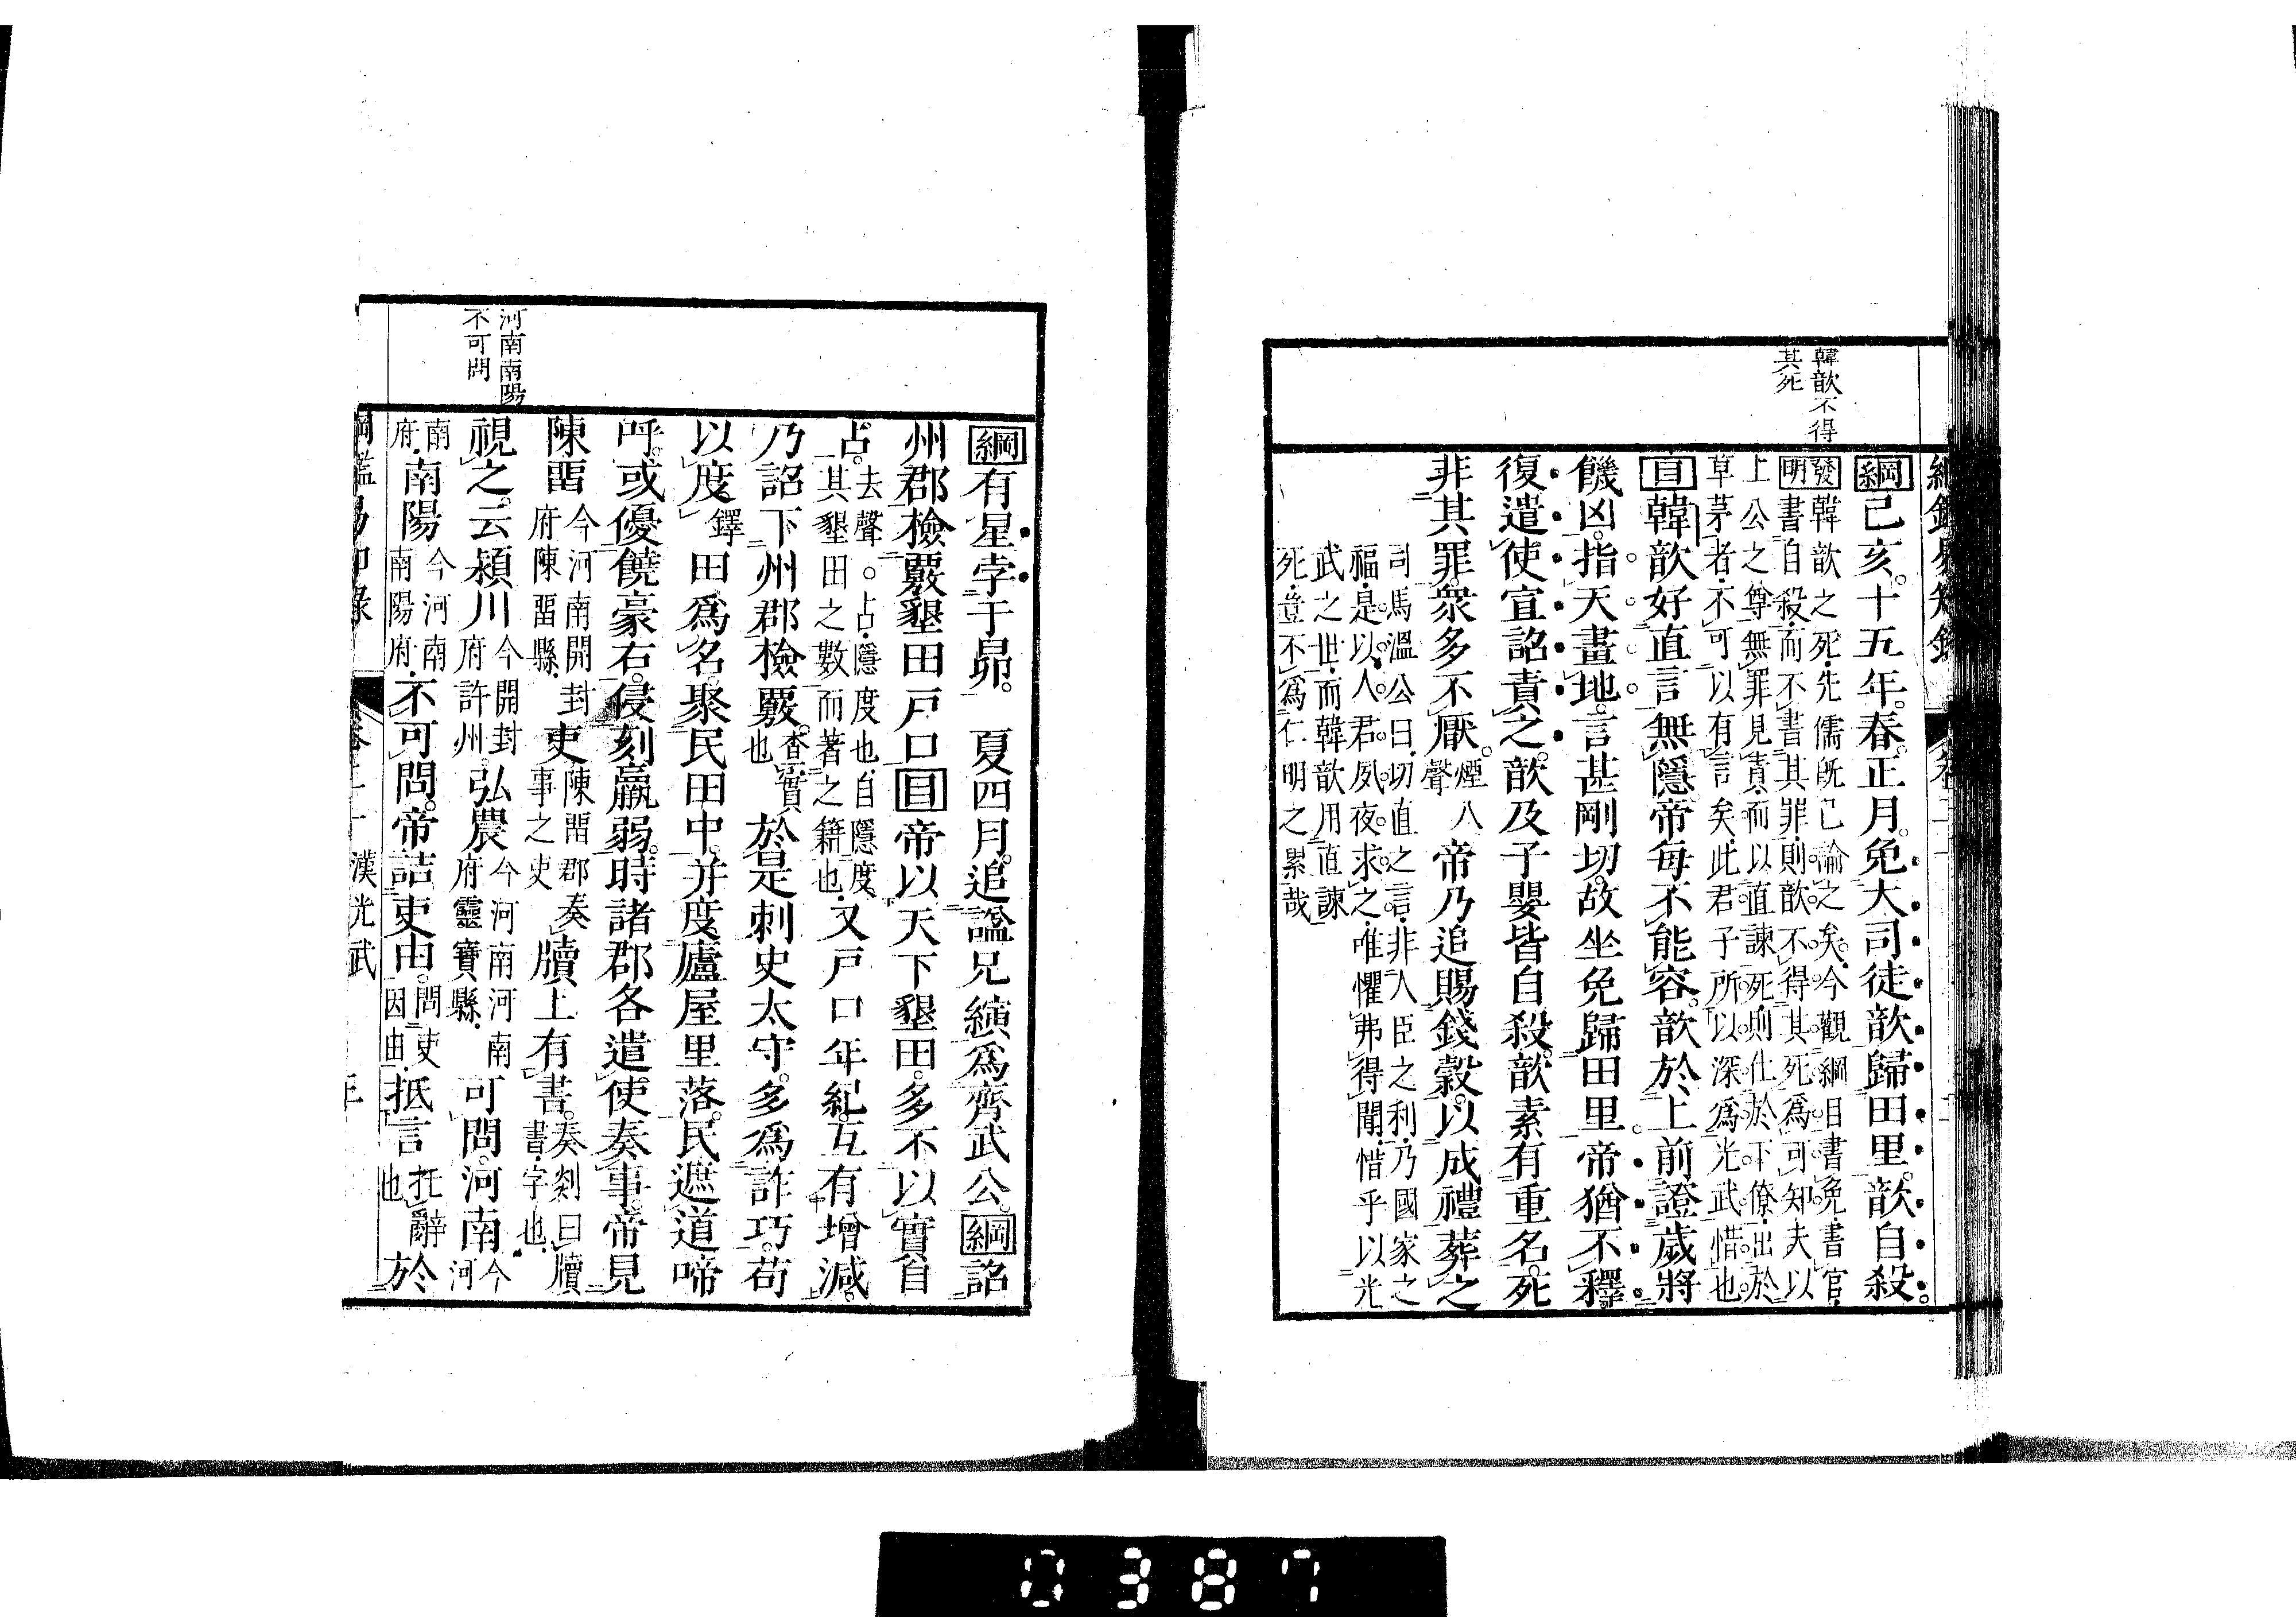 韓歆不得
其死
綱己亥。十五年。春。正月。免大司徒歆歸田里。歆自殺。
發明韓歆之死。先儒既已論之矣。今觀綱目書免。書官。
書自殺。而不書其罪。則歆不得其死爲可知。夫以
上公之尊。無罪見責。而以直諫死。則仕於下僚。出於
草茅者。不可以有言矣。此君子所以深爲光武惜也。
目韓歆好直言無隱。帝每不能容。歆於上前證歲將
饑凶。指天畫地。言甚剛切。故坐免歸田里。帝猶不釋。
復遣使宣詔責之。歆及子嬰皆自殺。歆素有重名。死
非其罪。衆多不厭。煙入聲帝乃追賜錢穀。以成禮葬之
司馬溫公曰。切直之言。非人臣之利。乃國家之
福。是以人君夙夜求之。唯懼弗得聞。惜乎以光
武之世。而韓歆用直諫
死。豈不爲仁明之累哉
河南南陽
不可問
綱有星孛于昴。 夏四月。追諡兄縯爲齊武公。綱詔
州郡檢覈墾田戶口目帝以天下墾田。多不以實自
占。去聲。○占。隱度也。自隱度其墾田之數。而著之籍也。又戶口年紀。互有增減。
乃詔下州郡檢覈。查實也於是刺史太守。多爲詐巧。苟
以度鐸田爲名。聚民田中。幷度廬屋里落。民遮道啼
呼。或優饒豪右。侵刻羸弱。時諸郡各遣使奏事。帝見
陳畱今河南開封府陳畱縣。吏陳畱郡奏事之吏牘上有書。奏剡曰牘書。字也。
視之。云潁川今開封府許州。弘農今河南河南府靈寶縣。可問。河南今河
南府。南陽今河南南陽府。不可問。帝詰吏由。問吏因由。抵言托辭也於